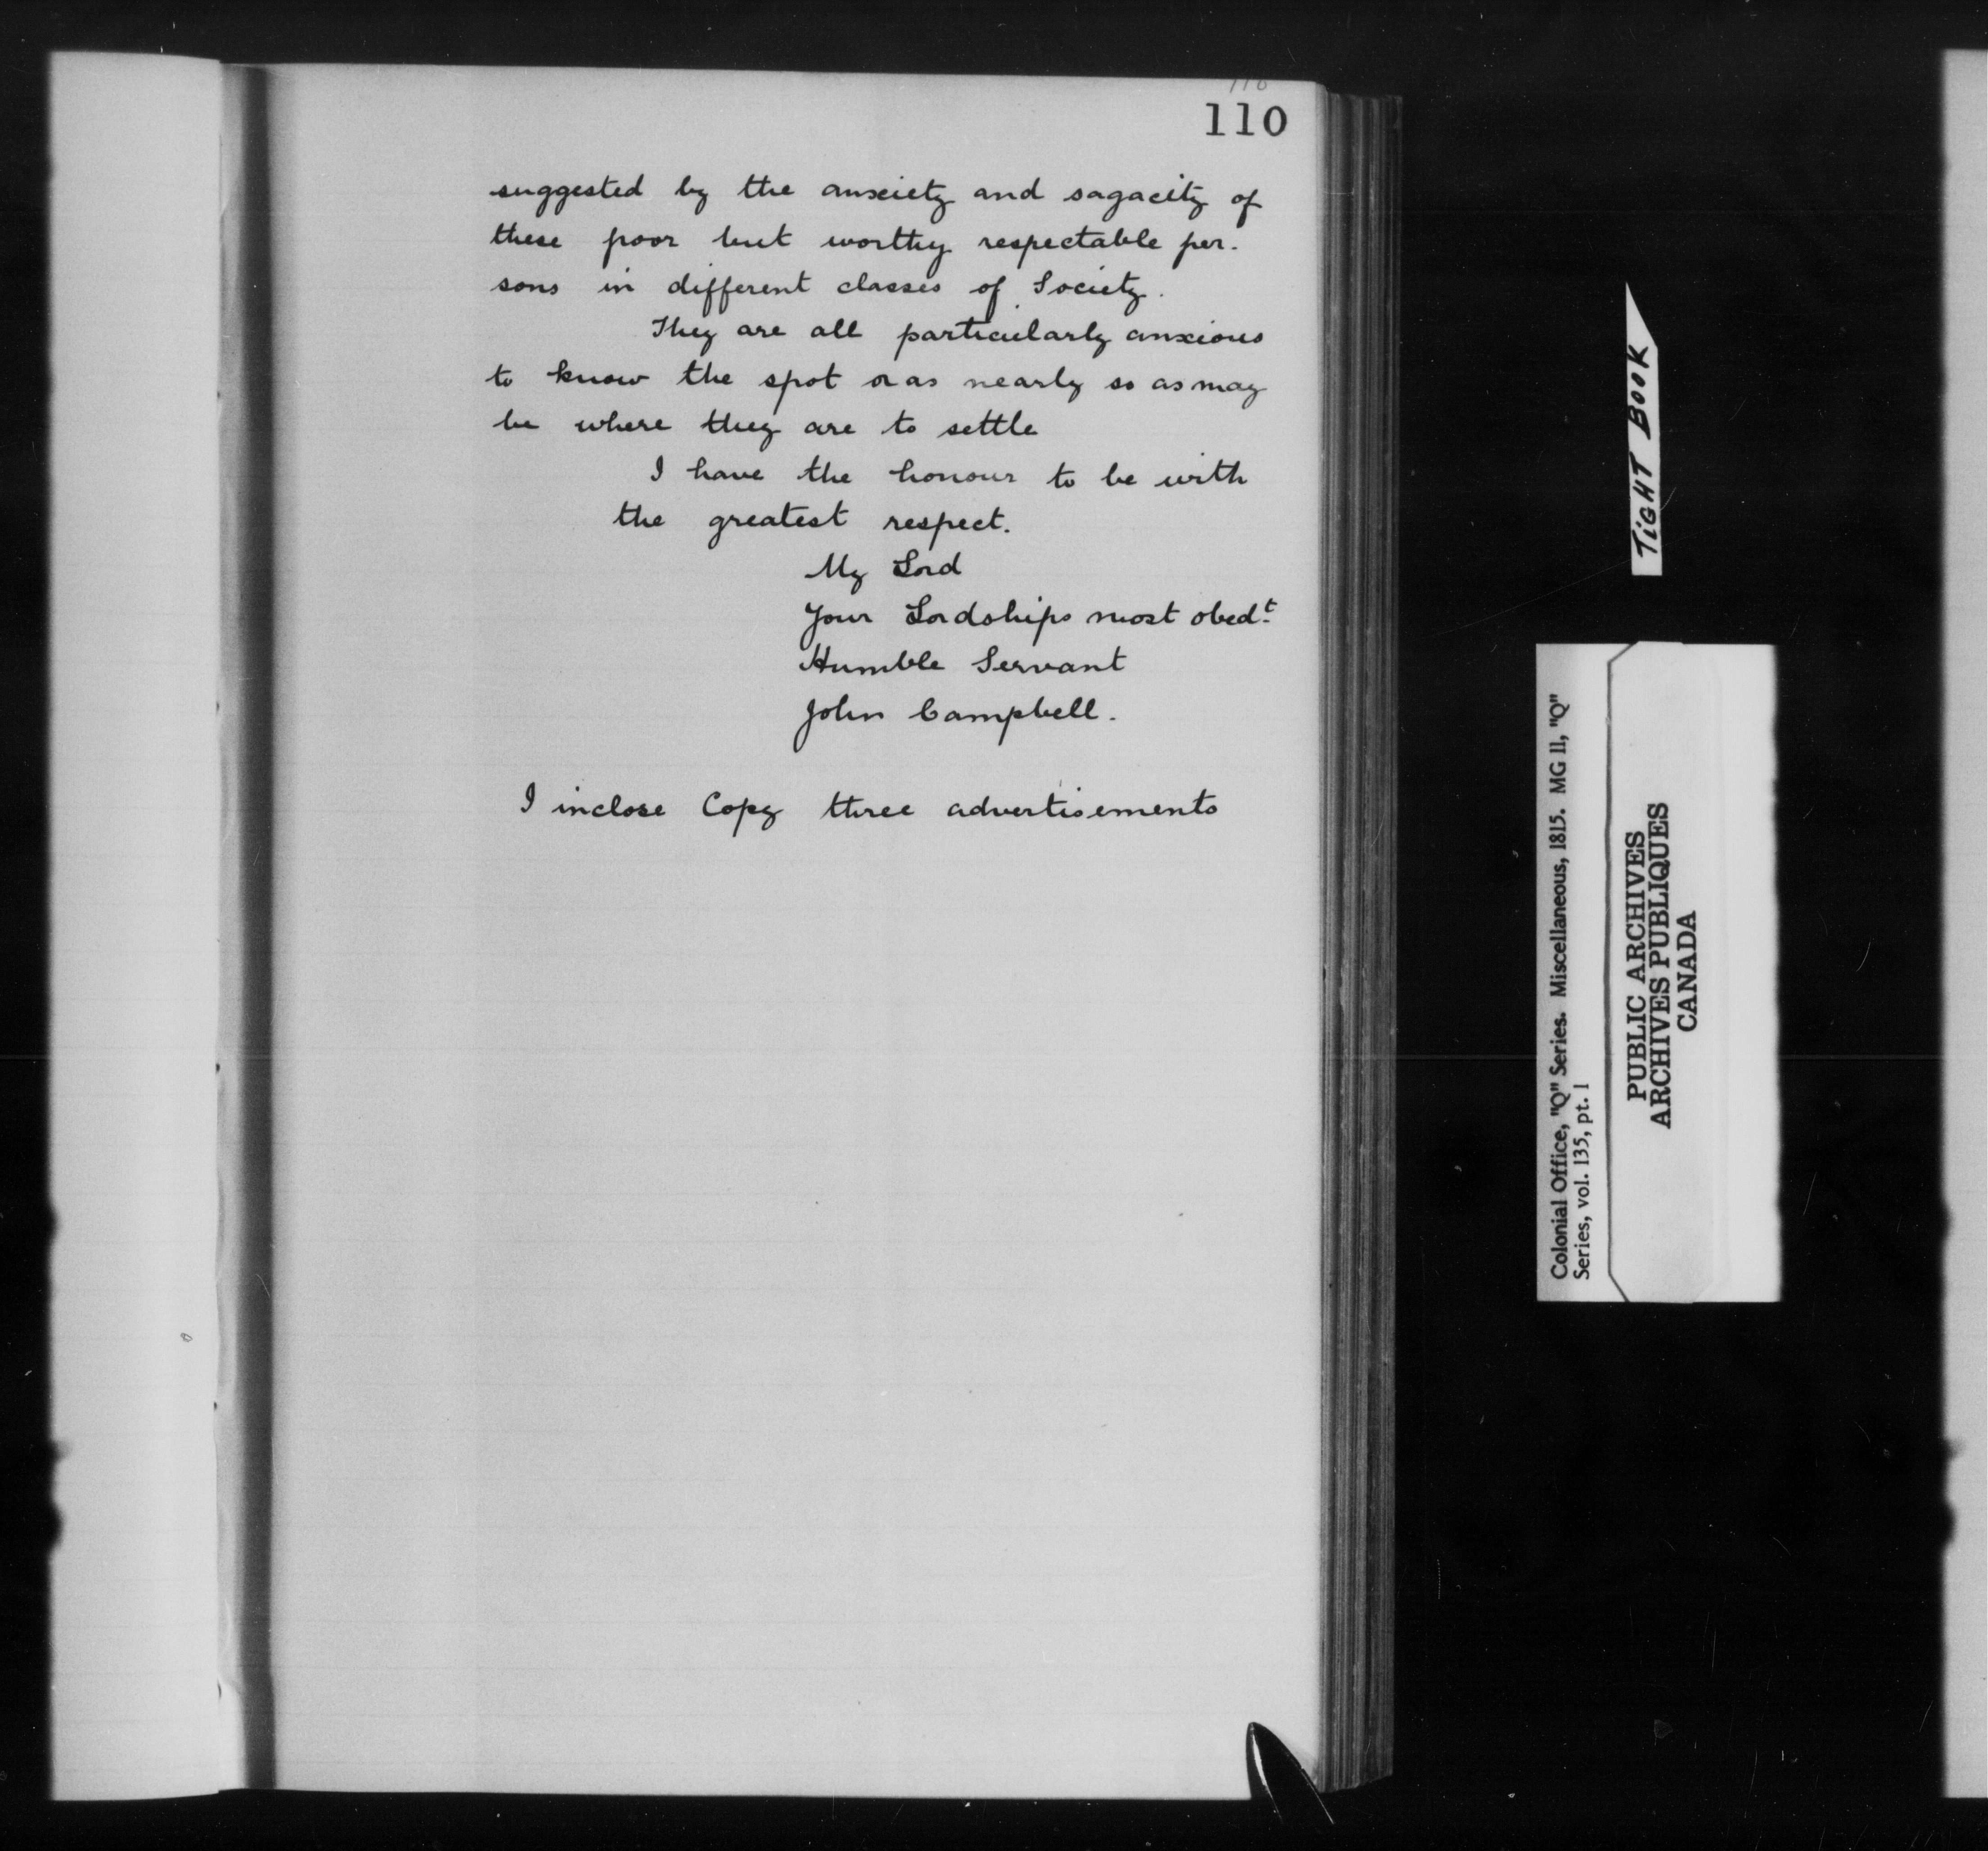 110
110
suggested by the anxiety and sagacity of
these poor but worthy respectable per-
sons in different classes of Society.
They are all particularly anxious
to know the spot or as nearly so as may
be where they are to settle
I have the honour to be with
the greatest respect.
My Lord
Your Lordships most obedt
Humble Servant
John Campbell.
I inclose Copy three advertisements
TIGHT BOOK
Colonial Office, "Q" Series. Miscellaneous, 1815. MG 11, "Q"
Series, vol. 135, pt. 1
PUBLIC ARCHIVES
ARCHIVES PUBLIQUES
CANADA